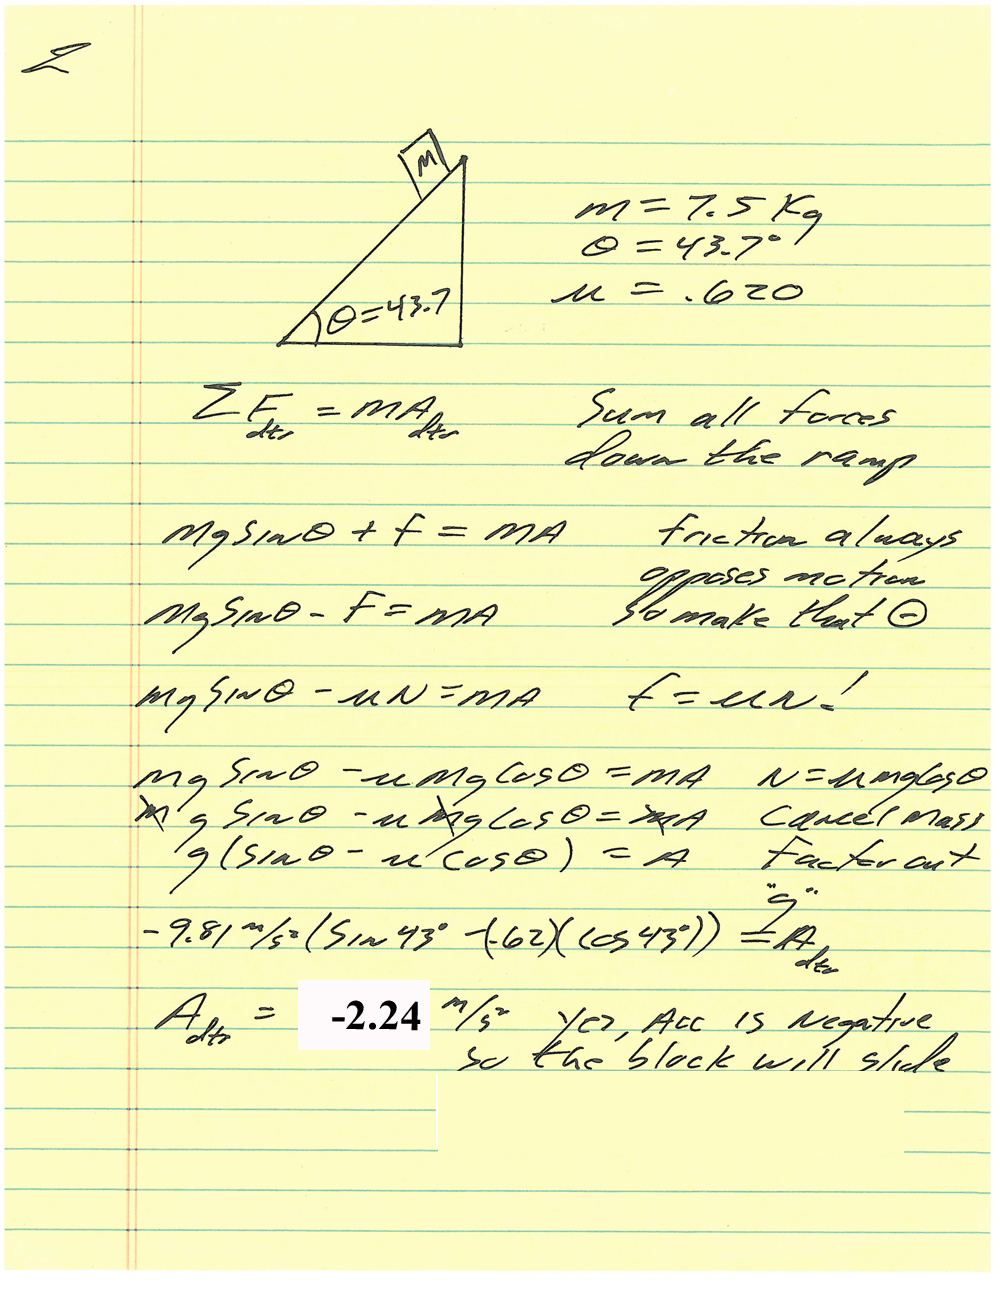 2
M
m = 7.5 Kg
θ = 43.7°
μ = .620
θ=43.7
ΣF_dtr = mA_dtr Sum all forces
down the ramp
mg sinθ + f = mA friction always
opposes motion
mg sinθ - F = mA so make that ⊖
mg sinθ - μN = mA f = μN!
mg sinθ - μmg cosθ = mA N = μmg cosθ
mg sinθ - μmg cosθ = mA cancel mass
g(sinθ - μ cosθ) = A factor out
"g"
-9.81 m/s²(sin 43° -(.62)(cos 43°)) = A_dtr
A_dtr = -2.24 m/s² Yes, Acc is negative
so the block will slide